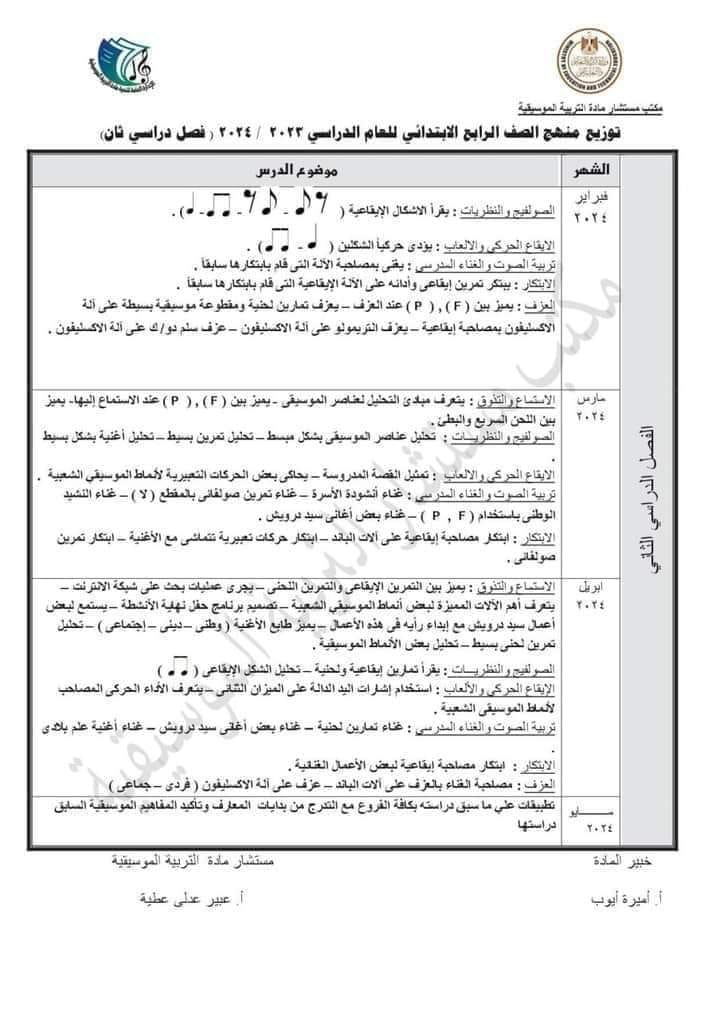 مكتب مستشار مادة التربية الموسيقية
توزيع منهج الصف الرابع الابتدائي للعام الدراسي ٢٠٢٣ / ٢٠٢٤ ( فصل دراسي ثان)
الشهر
موضوع الدرس
الفصل الدراسي الثاني
فبراير
٢٠٢٤
الصولفيج والنظريات : يقرأ الاشكال الإيقاعية ( - - - ) .
الايقاع الحركي والالعاب : يؤدى حركياً الشكلين ( - ) .
تربية الصوت والغناء المدرسي : يغنى بمصاحبة الآلة التى قام بابتكارها سابقاً .
الابتكار : يبتكر تمرين إيقاعى وأدائه على الآلة الإيقاعية التى قام بابتكارها سابقاً .
العزف : يميز بين ( F ) , ( P ) عند العزف – يعزف تمارين لحنية ومقطوعة موسيقية بسيطة على آلة
الاكسليفون بمصاحبة إيقاعية – يعزف التريمولو على آلة الاكسليفون – عزف سلم دو/ ك على آلة الاكسليفون .
مارس
٢٠٢٤
الاستماع والتذوق : يتعرف مبادئ التحليل لعناصر الموسيقى - يميز بين ( F ) , ( P ) عند الاستماع إليها- يميز
بين اللحن السريع والبطئ .
الصولفيج والنظريــات : تحليل عناصر الموسيقى بشكل مبسط – تحليل تمرين بسيط – تحليل أغنية بشكل بسيط
.
الايقاع الحركي والالعاب : تمثيل القصة المدروسة – يحاكى بعض الحركات التعبيرية لأنماط الموسيقي الشعبية .
تربية الصوت والغناء المدرسي : غناء أنشودة الأسرة – غناء تمرين صولفائى بالمقطع ( لا ) – غناء النشيد
الوطنى باستخدام ( P , F ) – غناء بعض أغانى سيد درويش .
الابتكار : ابتكار مصاحبة إيقاعية على آلات الباند – ابتكار حركات تعبيرية تتماشى مع الأغنية – ابتكار تمرين
صولفائى .
ابريل
٢٠٢٤
الاستماع والتذوق : يميز بين التمرين الإيقاعى والتمرين اللحنى – يجرى عمليات بحث على شبكة الانترنت –
يتعرف أهم الآلات المميزة لبعض أنماط الموسيقي الشعبية – تصميم برنامج حفل نهاية الأنشطة – يستمع لبعض
أعمال سيد درويش مع إبداء رأيه فى هذه الأعمال – يميز طابع الأغنية ( وطنى – دينى – إجتماعى ) – تحليل
تمرين لحنى بسيط – تحليل بعض الأنماط الموسيقية .
الصولفيج والنظريــات : يقرأ تمارين إيقاعية ولحنية – تحليل الشكل الإيقاعى ( )
الإيقاع الحركي والألعاب : استخدام إشارات اليد الدالة على الميزان الثنائى – يتعرف الأداء الحركى المصاحب
لأنماط الموسيقى الشعبية .
تربية الصوت والغناء المدرسي : غناء تمارين لحنية – غناء بعض أغانى سيد درويش – غناء أغنية علم بلادي
.
الابتكار : ابتكار مصاحبة إيقاعية لبعض الأعمال الغنائية .
العزف : مصاحبة الغناء بالعزف على آلات الباند – عزف على آلة الاكسليفون ( فردى – جماعى )
مــــــايو
٢٠٢٤
تطبيقات علي ما سبق دراسته بكافة الفروع مع التدرج من بدايات المعارف وتأكيد المفاهيم الموسيقية السابق
دراستها
خبير المادة
مستشار مادة التربية الموسيقية
أ. أميرة أيوب
أ. عبير عدلى عطية
مكتب مستشار التربية الموسيقية